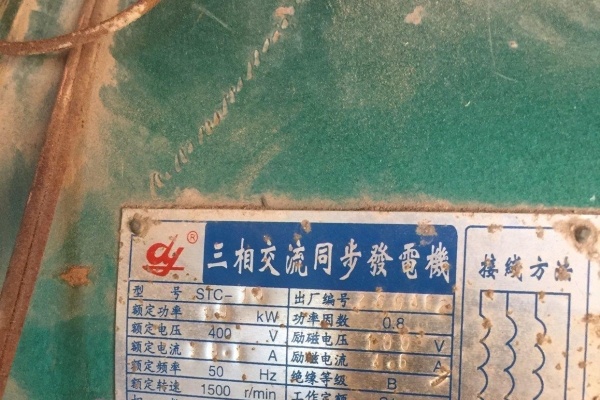 三相交流同步發電機
接线方法
型号 STC-
出厂编号
额定功率 kW
功率因数 0.8
额定电压 400 V
励磁电压 V
额定电流 A
励磁电流 A
额定频率 50 Hz
绝缘等级 B
额定转速 1500 r/min
工作定额